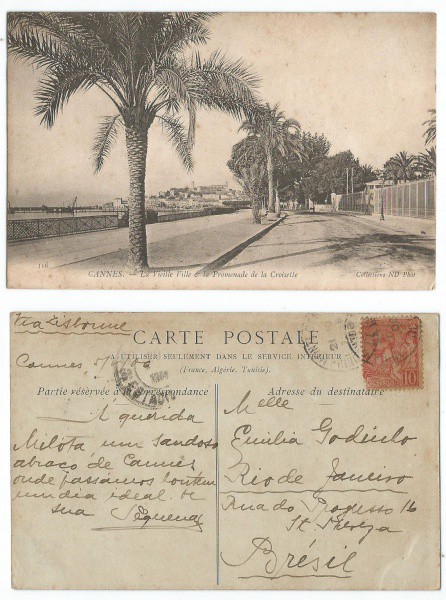 116
CANNES. — La Vieille Ville & la Promenade de la Croisette
Collections ND Phot
Via Lisbonne
CARTE POSTALE
A UTILISER SEULEMENT DANS LE SERVICE INTÉRIEUR
(France, Algérie, Tunisie).
Cannes, 5/
Partie réservée à la correspondance
A querida
Milota um saudoso
abraço de Cannes
onde passámos
um dia ideal. De
sua Pequena
Adresse du destinataire
Melle
Emilia Godinho
Rio de Janeiro
Rua do Progresso 16
Sta Thereza
Brésil
10